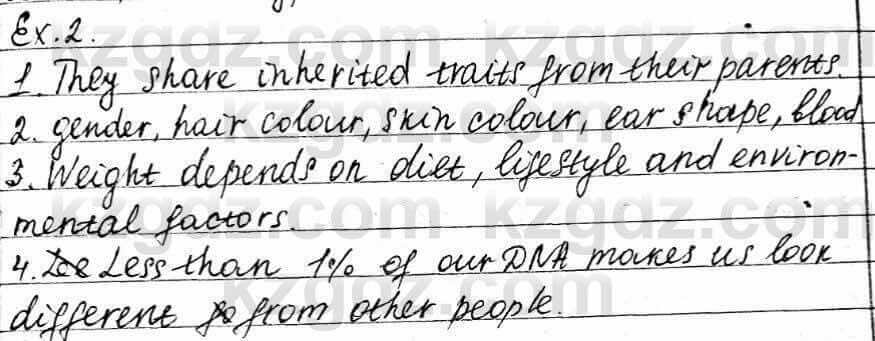 Ex.2.
1. They share inherited traits from their parents.
2. gender, hair colour, skin colour, ear shape, blood
3. Weight depends on diet, lifestyle and environ-
mental factors.
4. Less than 1% of our DNA makes us look
different from other people.